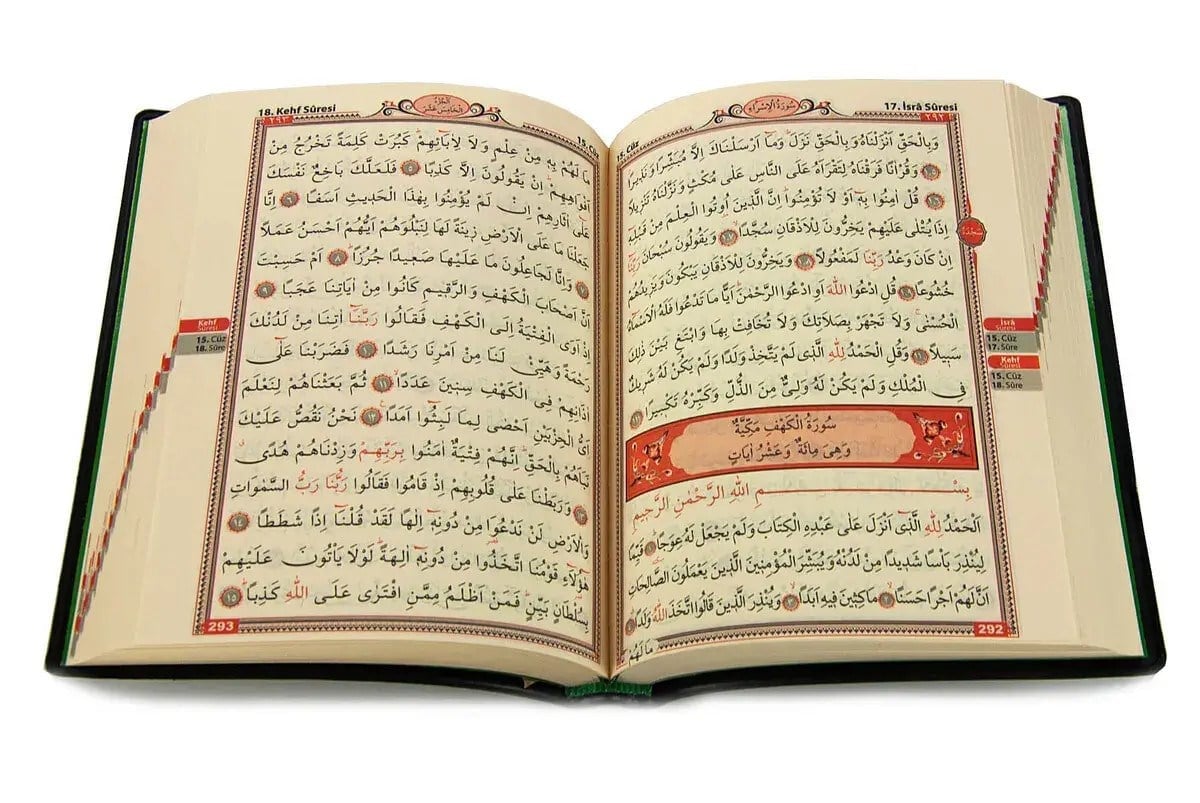 17. İsrâ Sûresi
سُورَةُ الْاِسْرَاءِ
15. Cüz
٢٩٢
وَبِالْحَقِّ اَنْزَلْنَاهُ وَبِالْحَقِّ نَزَلَ وَمَٓا اَرْسَلْنَاكَ اِلَّا مُبَشِّرًا وَنَذِيرًا
﴿١٠٥﴾ وَقُرْاٰنًا فَرَقْنَاهُ لِتَقْرَاَهُ عَلَى النَّاسِ عَلٰى مُكْثٍ وَنَزَّلْنَاهُ تَنْزِيلًا
﴿١٠٦﴾ قُلْ اٰمِنُوا بِهٖٓ اَوْ لَا تُؤْمِنُوا اِنَّ الَّذِينَ اُو۫تُوا الْعِلْمَ مِنْ قَبْلِهٖٓ
اِذَا يُتْلٰى عَلَيْهِمْ يَخِرُّونَ لِلْاَذْقَانِ سُجَّدًا ﴿١٠٧﴾ وَيَقُولُونَ سُبْحَانَ رَبِّنَٓا
سَجْدَة
اِنْ كَانَ وَعْدُ رَبِّنَا لَمَفْعُولًا ﴿١٠٨﴾ وَيَخِرُّونَ لِلْاَذْقَانِ يَبْكُونَ وَيَزِيدُهُمْ
خُشُوعًا ﴿١٠٩﴾ قُلِ ادْعُوا اللّٰهَ اَوِ ادْعُوا الرَّحْمٰنَ اَيًّا مَا تَدْعُوا فَلَهُ الْاَسْمَٓاءُ
الْحُسْنٰى وَلَا تَجْهَرْ بِصَلَاتِكَ وَلَا تُخَافِتْ بِهَا وَابْتَغِ بَيْنَ ذٰلِكَ
سَبِيلًا ﴿١١٠﴾ وَقُلِ الْحَمْدُ لِلّٰهِ الَّذِى لَمْ يَتَّخِذْ وَلَدًا وَلَمْ يَكُنْ لَهُ شَرِيكٌ
فِى الْمُلْكِ وَلَمْ يَكُنْ لَهُ وَلِىٌّ مِنَ الذُّلِّ وَكَبِّرْهُ تَكْبِيرًا ﴿١١١﴾
سُورَةُ الْكَهْفِ مَكِّيَّةٌ
وَهِىَ مِائَةٌ وَعَشْرُ اٰيَاتٍ
بِسْمِ اللّٰهِ الرَّحْمٰنِ الرَّحِيمِ
اَلْحَمْدُ لِلّٰهِ الَّذٓى اَنْزَلَ عَلٰى عَبْدِهِ الْكِتَابَ وَلَمْ يَجْعَلْ لَهُ عِوَجًا ﴿١﴾ قَيِّمًا
لِيُنْذِرَ بَأْسًا شَدِيدًا مِنْ لَدُنْهُ وَيُبَشِّرَ الْمُؤْمِنِينَ الَّذِينَ يَعْمَلُونَ الصَّالِحَاتِ
اَنَّ لَهُمْ اَجْرًا حَسَنًا ﴿٢﴾ مَاكِثِينَ فِيهِ اَبَدًا ﴿٣﴾ وَيُنْذِرَ الَّذِينَ قَالُوا اتَّخَذَ اللّٰهُ وَلَدًا ﴿٤﴾
مَا لَهُمْ
292
İsrâ
Sûresi
15. Cüz
17. Sûre
Kehf
Sûresi
15. Cüz
18. Sûre
18. Kehf Sûresi
اَلْجُزْءُ
الْخَامِسَ عَشَرَ
٢٩٣
مَا لَهُمْ بِهٖ مِنْ عِلْمٍ وَلَا لِاٰبَٓائِهِمْ كَبُرَتْ كَلِمَةً تَخْرُجُ مِنْ
اَفْوَاهِهِمْ اِنْ يَقُولُونَ اِلَّا كَذِبًا ﴿٥﴾ فَلَعَلَّكَ بَاخِعٌ نَفْسَكَ
عَلٰٓى اٰثَارِهِمْ اِنْ لَمْ يُؤْمِنُوا بِهٰذَا الْحَدِيثِ اَسَفًا ﴿٦﴾ اِنَّا
جَعَلْنَا مَا عَلَى الْاَرْضِ زِينَةً لَهَا لِنَبْلُوَهُمْ اَيُّهُمْ اَحْسَنُ عَمَلًا
﴿٧﴾ وَاِنَّا لَجَاعِلُونَ مَا عَلَيْهَا صَعِيدًا جُرُزًا ﴿٨﴾ اَمْ حَسِبْتَ
اَنَّ اَصْحَابَ الْكَهْفِ وَالرَّقِيمِ كَانُوا مِنْ اٰيَاتِنَا عَجَبًا ﴿٩﴾
اِذْ اَوَى الْفِتْيَةُ اِلَى الْكَهْفِ فَقَالُوا رَبَّنَٓا اٰتِنَا مِنْ لَدُنْكَ
رَحْمَةً وَهَيِّئْ لَنَا مِنْ اَمْرِنَا رَشَدًا ﴿١٠﴾ فَضَرَبْنَا عَلٰٓى
اٰذَانِهِمْ فِى الْكَهْفِ سِنِينَ عَدَدًا ﴿١١﴾ ثُمَّ بَعَثْنَاهُمْ لِنَعْلَمَ
اَىُّ الْحِزْبَيْنِ اَحْصٰى لِمَا لَبِثُٓوا اَمَدًا ﴿١٢﴾ نَحْنُ نَقُصُّ عَلَيْكَ
نَبَاَهُمْ بِالْحَقِّ اِنَّهُمْ فِتْيَةٌ اٰمَنُوا بِرَبِّهِمْ وَزِدْنَاهُمْ هُدًى
﴿١٣﴾ وَرَبَطْنَا عَلٰى قُلُوبِهِمْ اِذْ قَامُوا فَقَالُوا رَبُّنَا رَبُّ السَّمٰوَاتِ
وَالْاَرْضِ لَنْ نَدْعُوَ۬ا مِنْ دُونِهٖٓ اِلٰهًا لَقَدْ قُلْنَٓا اِذًا شَطَطًا ﴿١٤﴾
هٰٓؤُ۬لَٓاءِ قَوْمُنَا اتَّخَذُوا مِنْ دُونِهٖٓ اٰلِهَةً لَوْلَا يَأْتُونَ عَلَيْهِمْ
بِسُلْطَانٍ بَيِّنٍ فَمَنْ اَظْلَمُ مِمَّنِ افْتَرٰى عَلَى اللّٰهِ كَذِبًا ﴿١٥﴾
293
Kehf
Sûresi
15. Cüz
18. Sûre